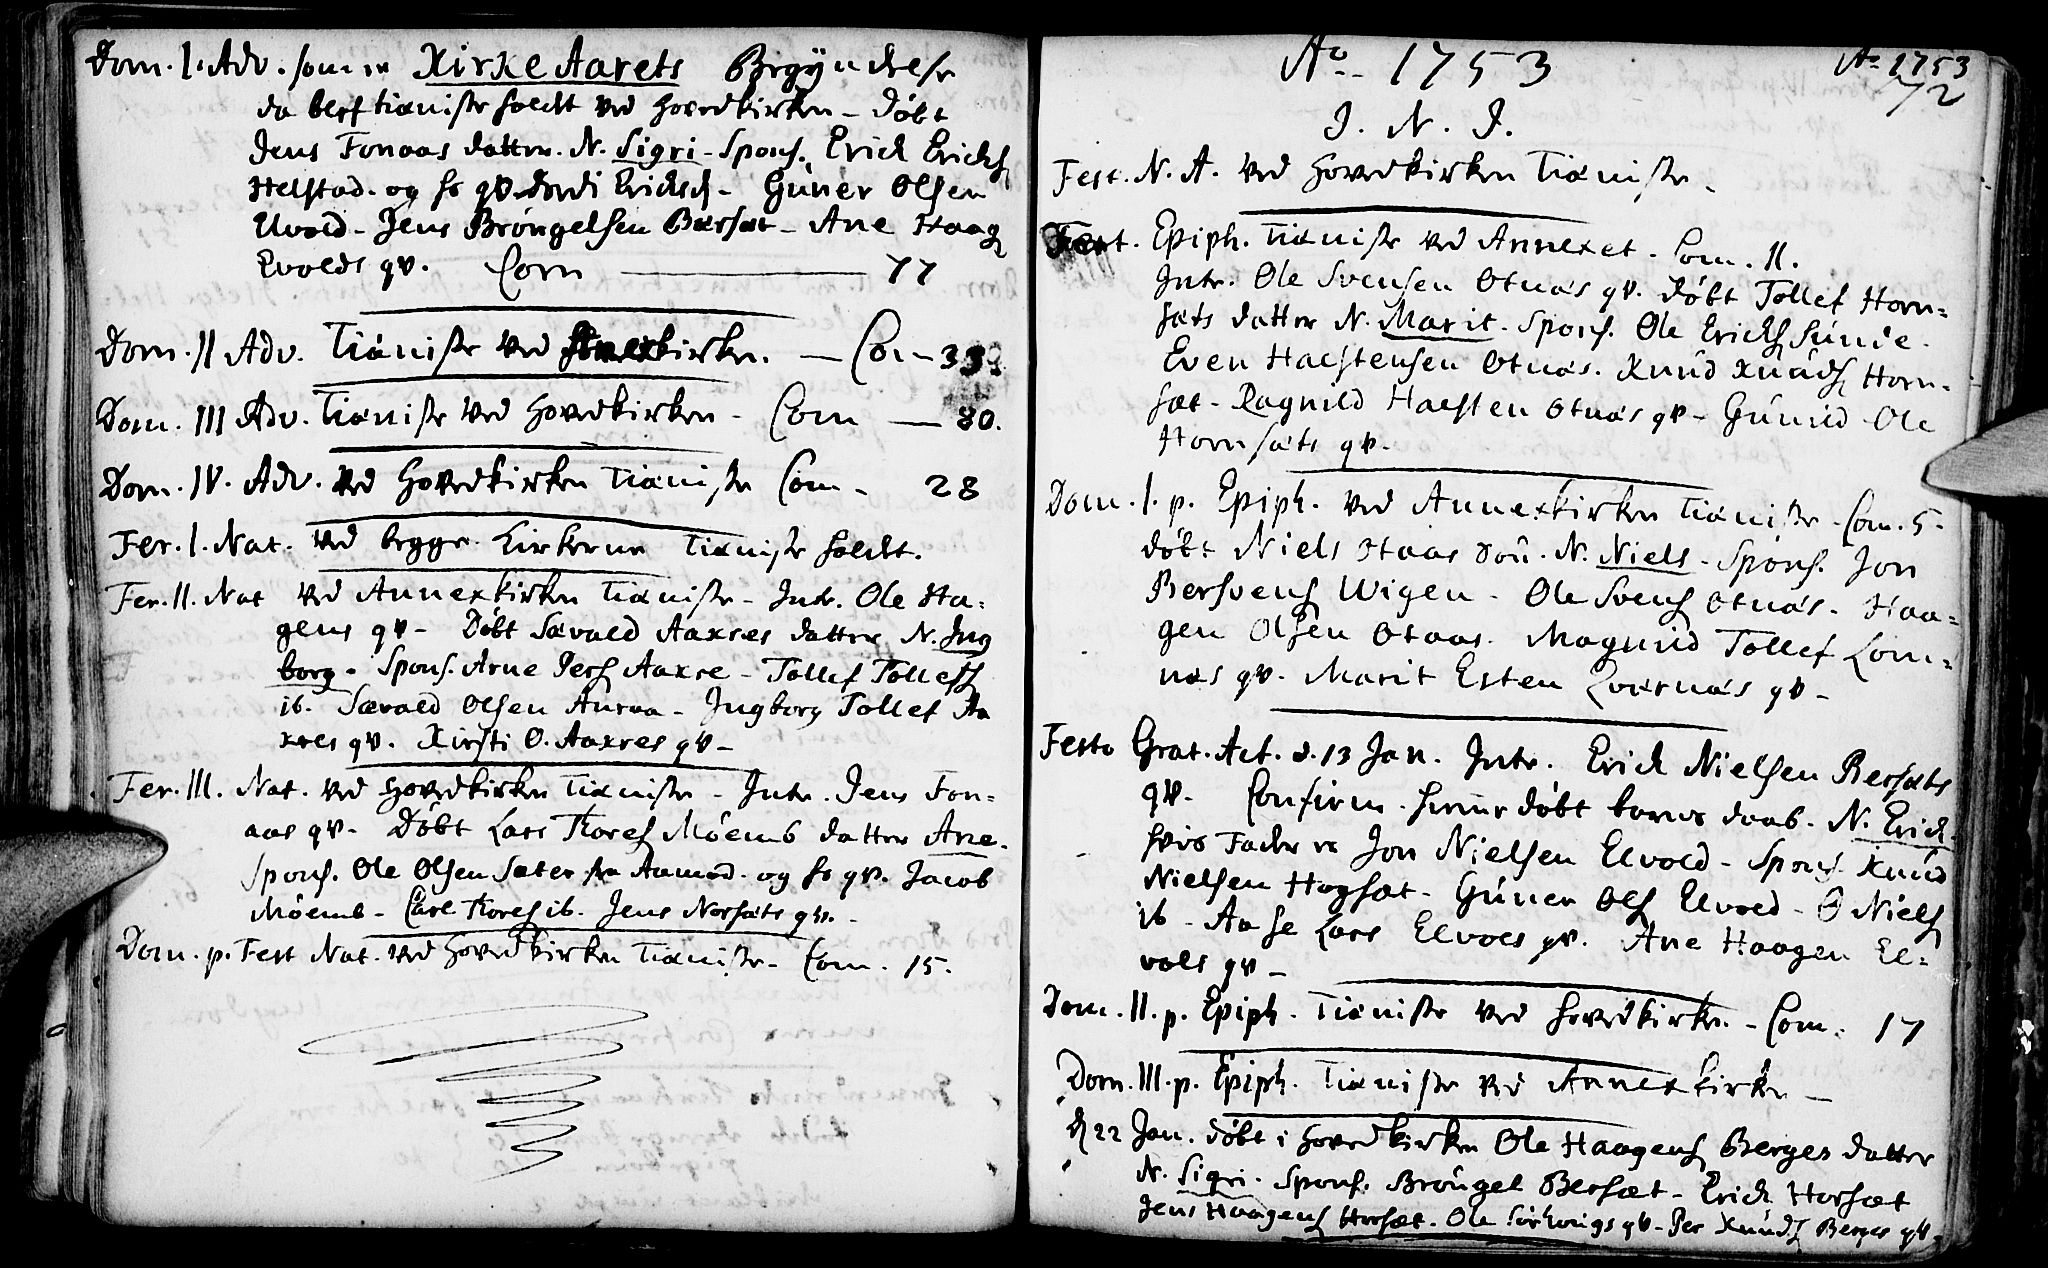 Dom. I. Adv. som er Kirke Aarets Begÿndelse
da blef tieniste holdt ved Hovedkirken - Døbt
Jens Fonaas datter. N. Sigri - Spons. Erick Ericks.
Helstad. og hs qv. Jordi Ericksd. - Guner Olsen
Elvold - Jens Brøngelsen Bersæt - Ane Haag
Evolds qv. Com 77
Dom. II Adv. Tieniste ved Annexkirken. - Com - 33.
Dom. III Adv. Tieniste ved Hovedkirken - Com - 80.
Dom. IV. Adv. ved Hovedkirken Tieniste Com - 28
Fer. I. Nat. ved begge Kirkerne Tieniste holdt.
Fer. II. Nat ved Annexkirken Tieniste - Intr. Ole Ha=
gens qv - Døbt Sævald Aakres datter N. Ing
borg - Spons. Arne Pers. Aakre - Tollef Tollefs.
ib. Sævald Olsen - Ingborg Tollef Aa
kres qv. Kirsti O. Aakres qv -
Fer. III. Nat. ved Hovedkirken Tieniste - Intr. Jens Fon=
aas qv - Døbt Lars Thores. Møemb datter Ane.
Spons. Ole Olsen Sæter fra Aamod. og hs qv. Jacob
Møemb - Carl Thores. ib. Jens Norsæts qv. -
Dom. p. Fest Nat. ved Hovedkirken Tieniste - Com. 15.
Ao. 1753
Ao 1753
72
J. N. J.
Fest. N. A. ved Hovedkirken Tieniste -
Fest. Epiph. Tieniste ved Annexet. Com. 11.
Intr. Ole Svensen Otnæs qv. døbt Tollef Horn=
sæts datter N. Marit. Spons. Ole Ericks. Sunde.
Even Halstensen Otnæs. Knud Knuds. Horn=
sæt - Ragnild Halsten Otnæs qv - Gunild Ole
Hornsæts qv.
Dom. I. p. Epiph. ved Annexkirken Tieniste - Com. 5.
døbt Niels Haas søn. N. Niels - Spons. Jon
Bersvens. Wigen - Ole Svens. Otnæs - Haa=
gen Olsen Otaas. Magnild Tollef Lom=
næs qv. Marit Esten Qvernæs qv -
Festo Grat. Act. d. 13 Jan. Intr. Erick Nielsen Bersæts
qv. Confirm. hieme døbt barns daab - N. Erick.
hvis Fader er Jon Nielsen Elvold - Spons. Knud
Nielsen Hogsæt - Guner Ols. Elvold - O Niels.
ib - Aase Lars Elvols qv. Ane Haagen El=
vols qv -
Dom. II. p. Epiph. Tieniste ved Hovedkirken - Com. 17
Dom. III. p. Epiph. Tieniste ved Annexkirken -
d. 22 Jan. døbt i Hovedkirken Ole Haagens. Berges datter
N. Sigri. Spons. Brøngel Bersæt - Erick Horsæt
Jens Haagens. Horsæt. Ole qv - Per Knuds. Berges qv -